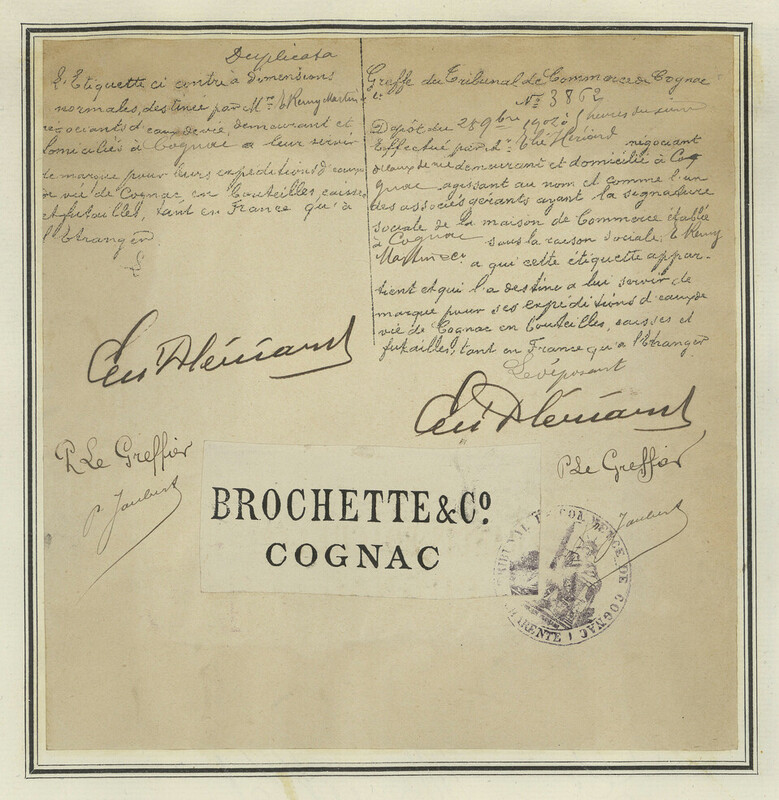 Duplicata
L'Etiquette ci contre à dimensions
normales, destinée par Mrs E. Remy Martin &
négociants d'eaux de vie, demeurant et
domiciliés à Cognac a leur servir
de marque pour leurs expéditions d'eaux
de vie de Cognac en bouteilles, caisses
et futailles, tant en France qu'à
l'Etranger
Greffe du Tribunal de Commerce de Cognac
No 3862
Dépôt du 28 9bre heures du
Effectué par négociant
d'eaux de vie demeurant et domicilié à Cog
nac, agissant au nom et comme l'un
des associés gérants ayant la signature
sociale de la maison de Commerce établie
à Cognac sous la raison sociale, E. Remy
Martin & Ci a qui cette étiquette appar-
tient et qui l'a destine a lui servir de
marque pour ses expéditions d'eaux de
vie de Cognac en bouteilles, caisses et
futailles, tant en France qu'a l'Etranger
Le déposant
P. Le Greffier
P. Joubert
P. Le Greffier
Joubert
BROCHETTE & Co.
COGNAC
TRIBUNAL DE COMMERCE DE COGNAC
CHARENTE